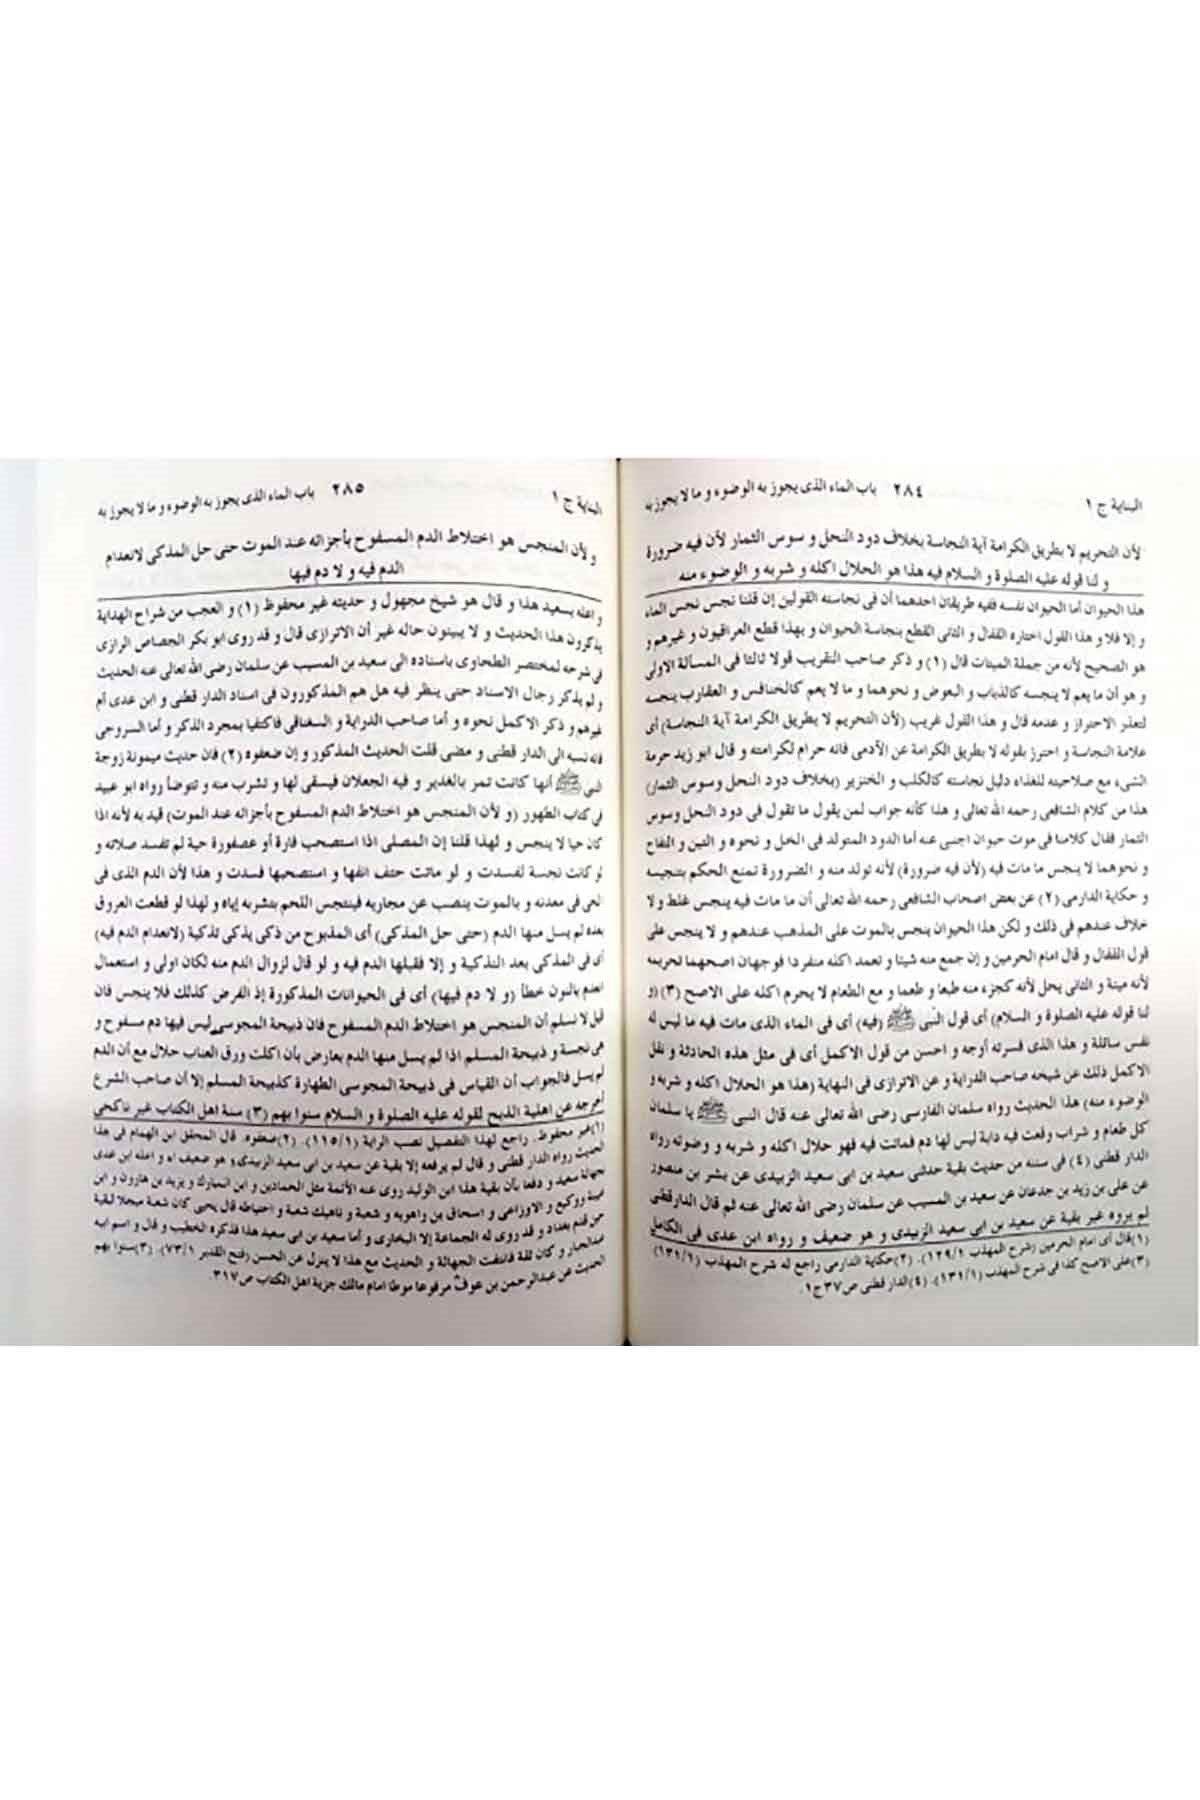 البناية ج ١ ٢٨٤ باب الماء الذى يجوز به الوضوء و ما لا يجوز به
لأن التحريم لا بطريق الكرامة آية النجاسة بخلاف دود النحل و سوس الثمار لأن فيه ضرورة
و لنا قوله عليه الصلوة و السلام فيه هذا هو الحلال اكله و شربه و الوضوء منه
هذا الحيوان أما الحيوان نفسه ففيه طريقان احدهما أن فى نجاسته القولين إن قلنا نجس نجس الماء
و إلا فلا و هذا القول اختاره القفال و الثانى القطع بنجاسة الحيوان و بهذا قطع العراقيون و غيرهم و
هو الصحيح لأنه من جملة الميتات قال (١) و ذكر صاحب التقريب قولا ثالثا فى المسألة الاولى
و هو أن ما يعم لا ينجسه كالذباب و البعوض و نحوهما و ما لا يعم كالخنافس و العقارب ينجسه
لتعذر الاحتراز و عدمه قال و هذا القول غريب (لأن التحريم لا بطريق الكرامة آية النجاسة) أى
علامة النجاسة و احترز بقوله لا بطريق الكرامة عن الآدمى فانه حرام لكرامته و قال ابو زيد حرمة
الشىء مع صلاحيته للغذاء دليل نجاسته كالكلب و الخنزير (بخلاف دود النحل وسوس الثمار)
هذا من كلام الشافعى رحمه الله تعالى و هذا كأنه جواب لمن يقول ما تقول فى دود النحل وسوس
الثمار فقال كلامنا فى موت حيوان اجنبى عنه أما الدود المتولد فى الخل و نحوه و التين و التفاح
و نحوهما لا ينجس ما مات فيه (لأن فيه ضرورة) لأنه تولد منه و الضرورة تمنع الحكم بتنجيسه
و حكاية الدارمى (٢) عن بعض اصحاب الشافعى رحمه الله تعالى أن ما مات فيه ينجس غلط و لا
خلاف عندهم فى ذلك و لكن هذا الحيوان ينجس بالموت على المذهب عندهم و لا ينجس على
قول القفال و قال امام الحرمين و إن جمع منه شيئا و تعمد اكله منفردا فوجهان اصحهما تحريمه
لأنه ميتة و الثانى يحل لأنه كجزء منه طبعا و طعما و مع الطعام لا يحرم اكله على الاصح (٣) (و
لنا قوله عليه الصلوة و السلام) أى قول النبى ﷺ (فيه) أى فى الماء الذى مات فيه ما ليس له
نفس سائلة و هذا الذى فسرته أوجه و احسن من قول الاكمل أى فى مثل هذه الحادثة و نقل
الاكمل ذلك عن شيخه صاحب الدراية و عن الاترازى فى النهاية (هذا هو الحلال اكله و شربه و
الوضوء منه) هذا الحديث رواه سلمان الفارسى رضى الله تعالى عنه قال النبى ﷺ يا سلمان
كل طعام و شراب وقعت فيه دابة ليس لها دم فماتت فيه فهو حلال اكله و شربه و وضوئه رواه
الدار قطنى (٤) فى سننه من حديث بقية حدثنى سعيد بن ابى سعيد الزبيدى عن بشر بن منصور
عن على بن زيد بن جدعان عن سعيد بن المسيب عن سلمان رضى الله تعالى عنه ثم قال الدارقطنى
لم يروه غير بقية عن سعيد بن ابى سعيد الزبيدى و هو ضعيف و رواه ابن عدى فى الكامل
(١)قال أى امام الحرمين (شرح المهذب ١٢٩/١). (٢)حكاية الدارمى راجع له شرح المهذب (١٣١/١)
(٣)على الاصح كذا فى شرح المهذب (١٣١/١). (٤)الدار قطنى ص٣٧ج١.
البناية ج ١ ٢٨٥ باب الماء الذى يجوز به الوضوء و ما لا يجوز به
و لأن المنجس هو اختلاط الدم المسفوح بأجزائه عند الموت حتى حل المذكى لانعدام
الدم فيه و لا دم فيها
و اعله بسعيد هذا و قال هو شيخ مجهول و حديثه غير محفوظ (١) و العجب من شراح الهداية
يذكرون هذا الحديث و لا يبينون حاله غير أن الاترازى قال و قد روى ابو بكر الجصاص الرازى
فى شرحه لمختصر الطحاوى باسناده الى سعيد بن المسيب عن سلمان رضى الله تعالى عنه الحديث
و لم يذكر رجال الاسناد حتى ينظر فيه هل هم المذكورون فى اسناد الدار قطنى و ابن عدى أم
غيرهم و ذكر الاكمل نحوه و أما صاحب الدراية و السغناقى فاكتفيا بمجرد الذكر و أما السروجى
فانه نسبه الى الدار قطنى و مضى قلت الحديث المذكور و إن ضعفوه (٢) فان حديث ميمونة زوجة
النبى ﷺ أنها كانت تمر بالغدير و فيه الجعلان فيسقى لها و تشرب منه و تتوضأ رواه ابو عبيد
فى كتاب الطهور (و لأن المنجس هو اختلاط الدم المسفوح بأجزائه عند الموت) قيد به لأنه اذا
كان حيا لا ينجس و لهذا قلنا إن المصلى اذا استصحب فارة أو عصفورة حية لم تفسد صلاته و
لو كانت نجسة لفسدت و لو ماتت حتف انفها و استصحبها فسدت و هذا لأن الدم الذى فى
الحى فى معدنه و بالموت ينصب عن مجاريه فينتجس اللحم بتشربه إياه و لهذا لو قطعت العروق
بعده لم يسل منها الدم (حتى حل المذكى) أى المذبوح من ذكى يذكى تذكية (لانعدام الدم فيه)
أى فى المذكى بعد التذكية و إلا فقبلها الدم فيه و لو قال لزوال الدم منه لكان اولى و استعمال
انعدم بالنون خطأ (و لا دم فيها) أى فى الحيوانات المذكورة إذ الفرض كذلك فلا ينجس فان
قيل لا نسلم أن المنجس هو اختلاط الدم المسفوح فان ذبيحة المجوسى ليس فيها دم مسفوح و
هى نجسة و ذبيحة المسلم اذا لم يسل منها الدم بعارض بأن اكلت ورق العناب حلال مع أن الدم
لم يسل فالجواب أن القياس فى ذبيحة المجوسى الطهارة كذبيحة المسلم إلا أن صاحب الشرع
أخرجه عن اهلية الذبح لقوله عليه الصلوة و السلام سنوا بهم (٣) سنة اهل الكتاب غير ناكحى
(١)غير محفوظ. راجع لهذا التفصيل نصب الراية (١١٥/١). (٢)ضعفوه. قال المحقق ابن الهمام فى هذا
الحديث رواه الدار قطنى و قال لم يرفعه إلا بقية عن سعيد بن ابى سعيد الزبيدى و هو ضعيف اه و اعله ابن عدى
بجهالة سعيد و دفعا بأن بقية هذا ابن الوليد روى عنه الأئمة مثل الحمادين و ابن المبارك و يزيد بن هارون و ابن
عيينة و وكيع و الاوزاعى و اسحاق بن راهويه و شعبة و ناهيك شعبة و احتياطه قال يحيى كان شعبة مبجلا لبقية
حين قدم بغداد و قد روى له الجماعة إلا البخارى و أما سعيد بن ابى سعيد هذا فذكره الخطيب و قال و اسم ابيه
عبدالجبار و كان ثقة فانتفت الجهالة و الحديث مع هذا لا ينزل عن الحسن (فتح القدير ٧٣/١). (٣)سنوا بهم
الحديث عن عبدالرحمن بن عوف مرفوعا موطا امام مالك جزية اهل الكتاب ص٣١٧.